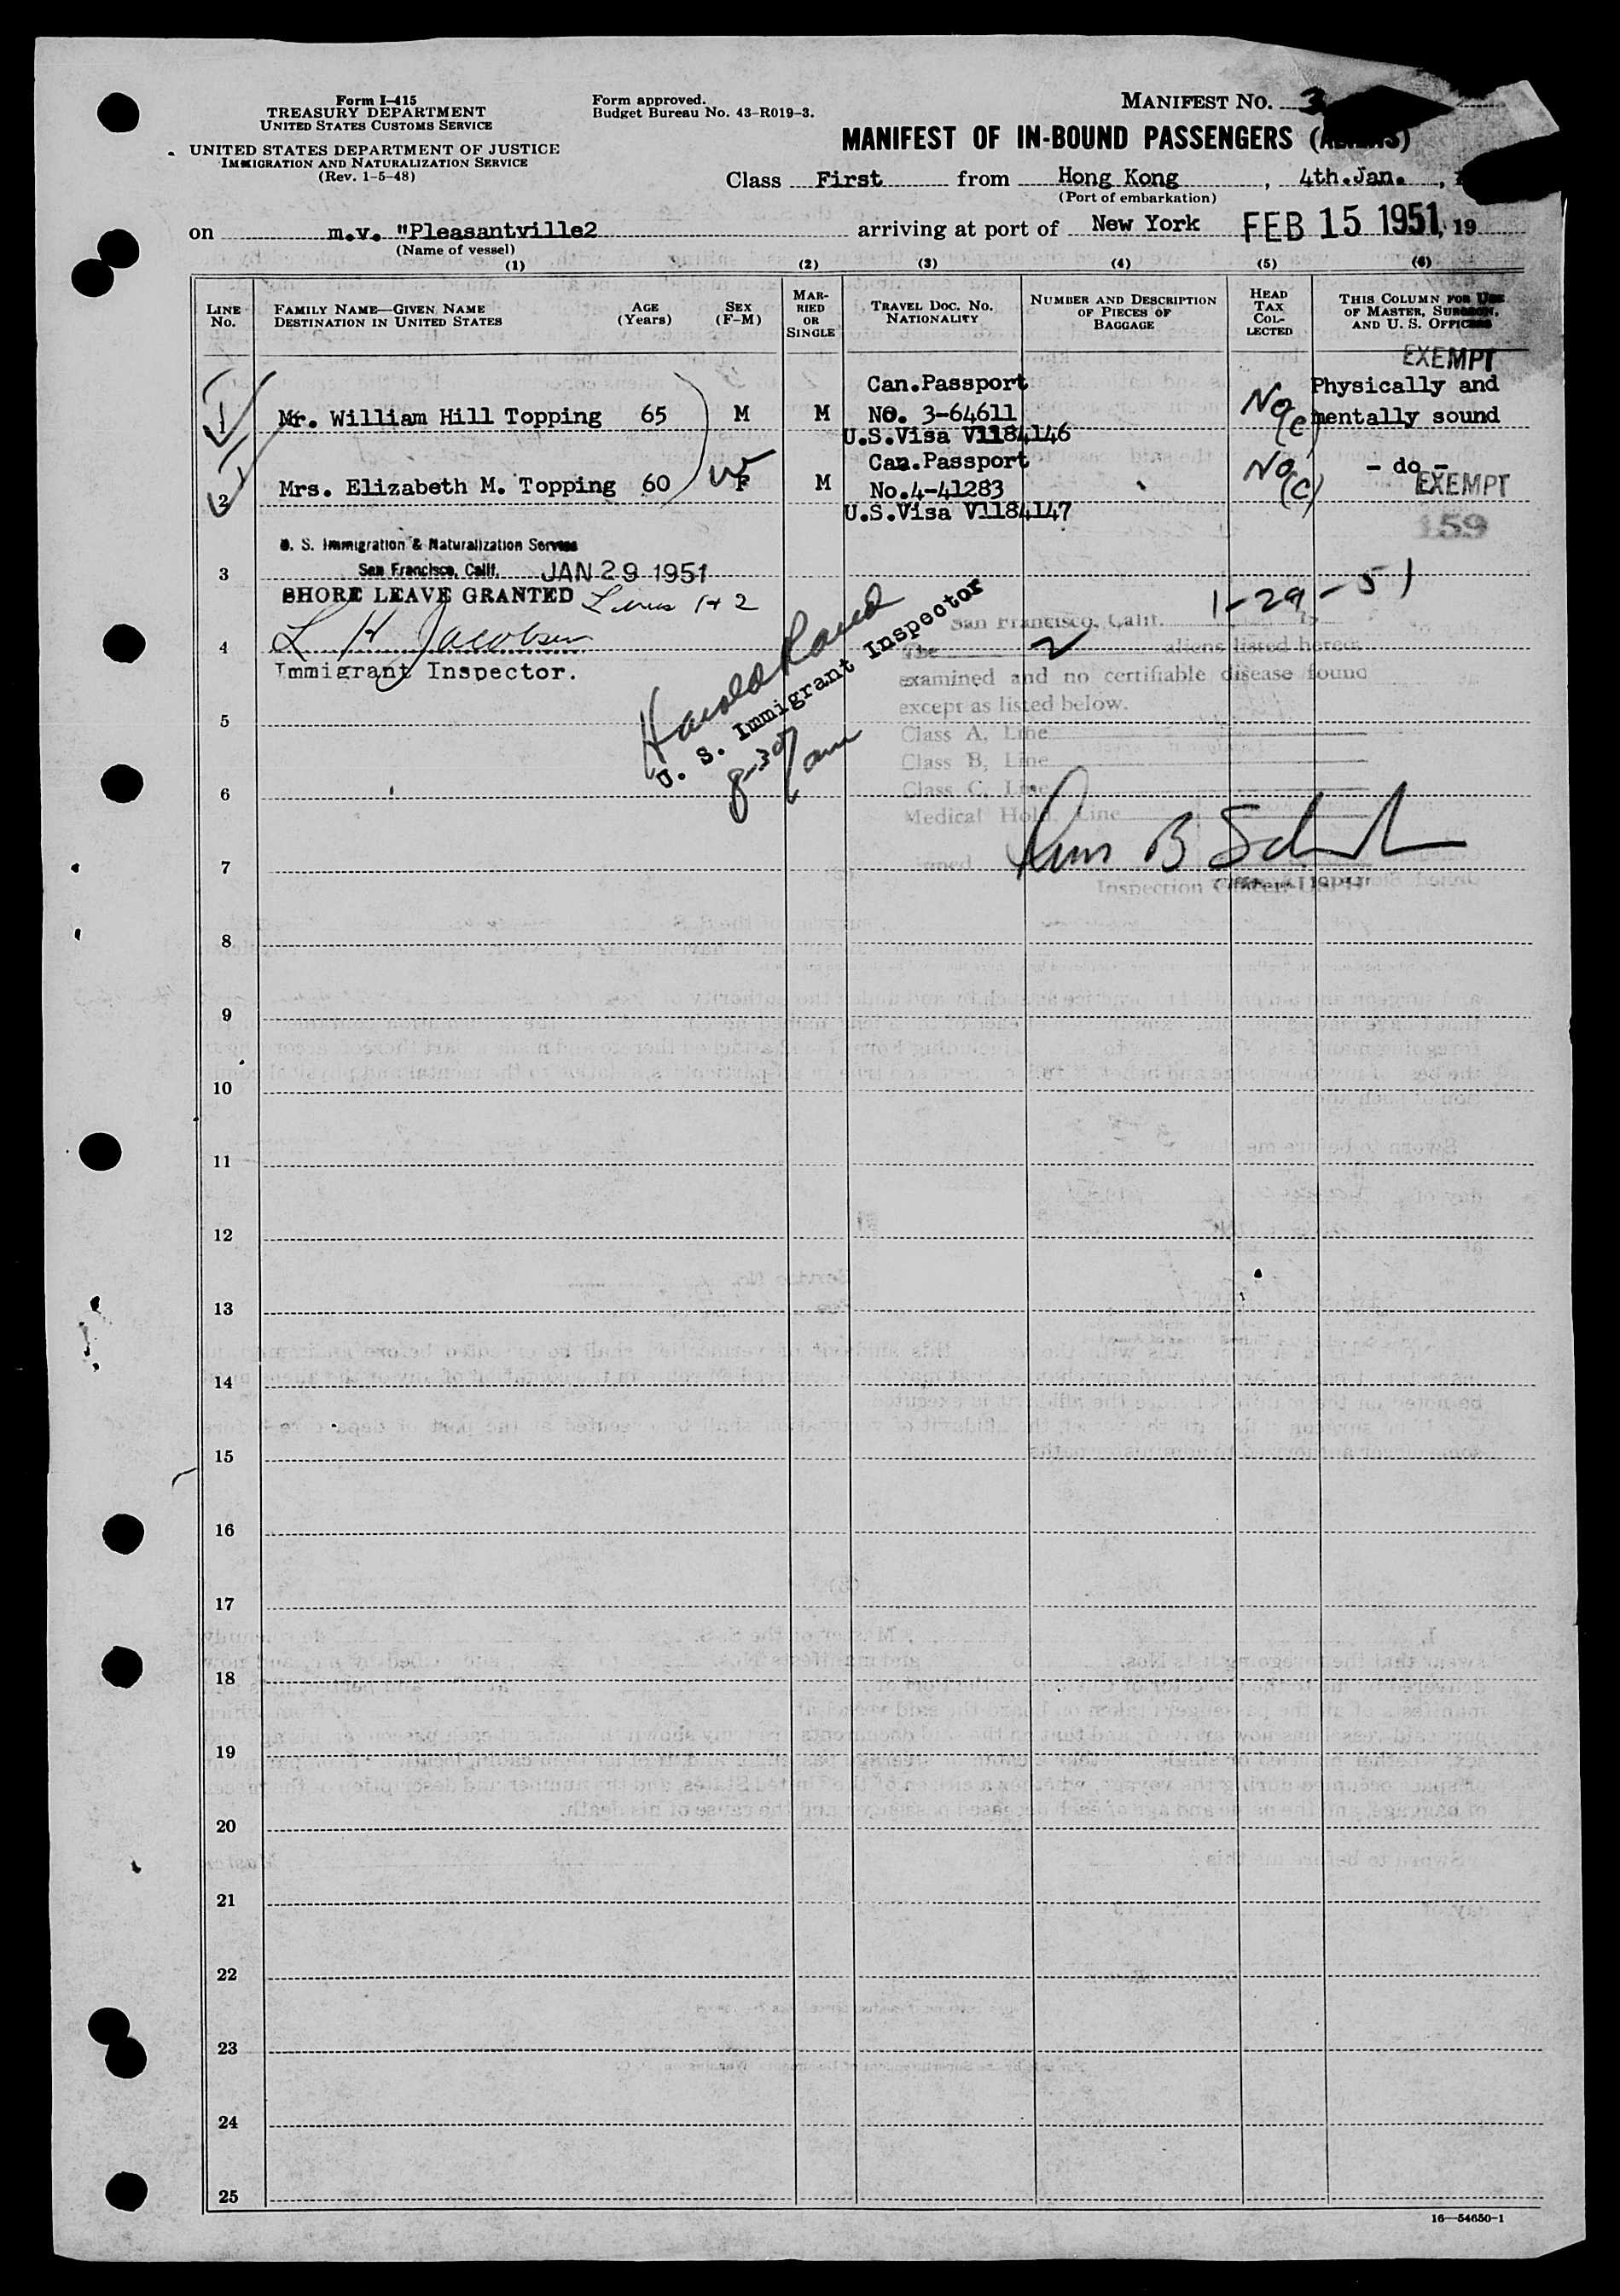 Form I-415
TREASURY DEPARTMENT
UNITED STATES CUSTOMS SERVICE
UNITED STATES DEPARTMENT OF JUSTICE
IMMIGRATION AND NATURALIZATION SERVICE
(Rev. 1-5-48)
Form approved.
Budget Bureau No. 43-R019-3.
MANIFEST NO. 3
MANIFEST OF IN-BOUND PASSENGERS
Class First from Hong Kong, 4th.Jan.,
(Port of embarkation)
on m.v. "Pleasantville2 arriving at port of New York FEB 15 1951, 19
(Name of vessel)
(1) (2) (3) (4) (5) (6)
LINE No. FAMILY NAME—GIVEN NAME DESTINATION IN UNITED STATES AGE (Years) SEX (F-M) MARRIED OR SINGLE TRAVEL DOC. NO. NATIONALITY NUMBER AND DESCRIPTION OF PIECES OF BAGGAGE HEAD TAX COLLECTED THIS COLUMN FOR USE OF MASTER, SURGEON, AND U. S. OFFICERS
EXEMPT
Can.Passport Physically and
1 Mr. William Hill Topping 65 M M NO. 3-64611 No (e) mentally sound
U.S.Visa V1184146
Can.Passport No - do -
2 Mrs. Elizabeth M. Topping 60 F M No.4-41283 (c) EXEMPT
U.S.Visa V1184147
159
U. S. Immigration & Naturalization Service
3 San Francisco, Calif. JAN 29 1951
SHORE LEAVE GRANTED Lines 1+2
1-29-51
San Francisco, Calif.
4 L H Jacobsen
Immigrant Inspector.
Harold Rand
U. S. Immigrant Inspector
8-30 am
The 2 aliens listed herein
examined and no certifiable disease found
except as listed below.
5 Class A, Line
Class B, Line
6 Class C, Line
Medical Hold, Line
7
Inspection Officer
8
9
10
11
12
13
14
15
16
17
18
19
20
21
22
23
24
25
16—54650-1